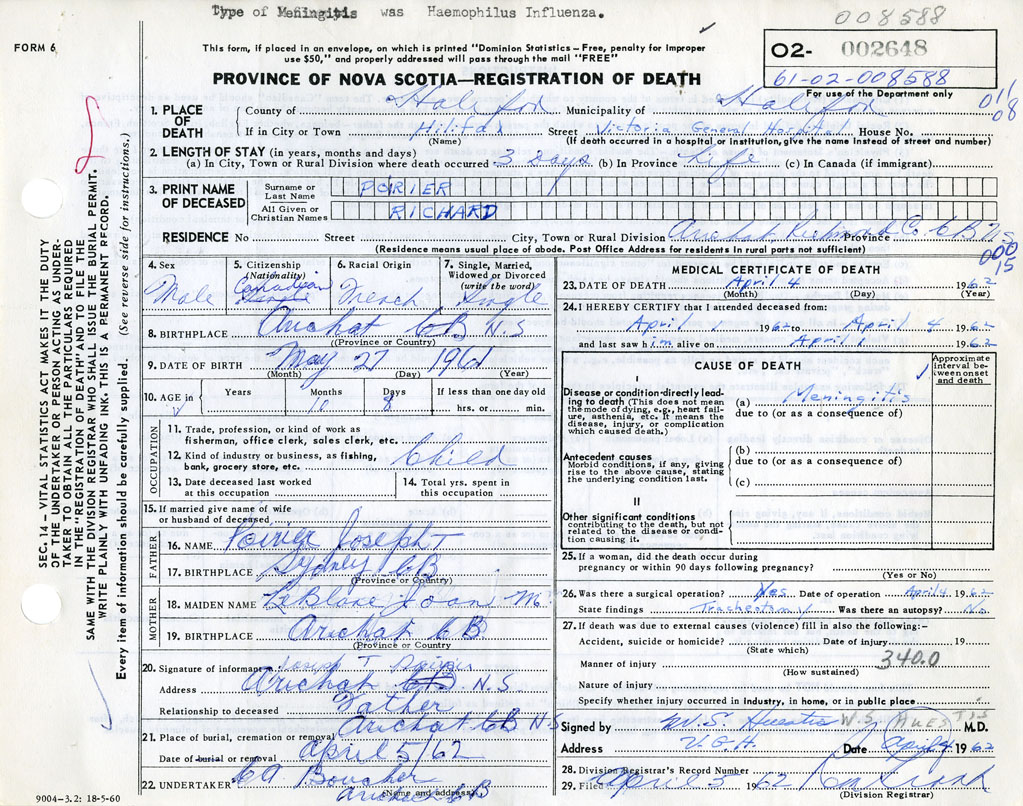 Type of Meningitis was Haemophilus Influenza.
008588
FORM 6
This form, if placed in an envelope, on which is printed "Dominion Statistics – Free, penalty for improper
use $50," and properly addressed will pass through the mail "FREE"
O2- 002648
61-02-008588
For use of the Department only
PROVINCE OF NOVA SCOTIA—REGISTRATION OF DEATH
011
08
1. PLACE OF DEATH
County of Halifax Municipality of Halifax
If in City or Town Hilifax Street Victoria General Hospital House No.
(Name) (If death occurred in a hospital or institution, give the name instead of street and number)
2. LENGTH OF STAY (in years, months and days)
(a) In City, Town or Rural Division where death occurred 3 Days (b) In Province Life (c) In Canada (if immigrant)
3. PRINT NAME OF DECEASED
Surname or Last Name POIRIER
All Given or Christian Names RICHARD
RESIDENCE No Street City, Town or Rural Division Arichat Richmond Co. CB Province N.S.
(Residence means usual place of abode. Post Office Address for residents in rural parts not sufficient)
000
15
4. Sex Male
5. Citizenship (Nationality) Canadian Single
6. Racial Origin French
7. Single, Married, Widowed or Divorced (write the word) Single
8. BIRTHPLACE Arichat CB N.S
(Province or Country)
9. DATE OF BIRTH May 27 1961
(Month) (Day) (Year)
10. AGE in Years Months Days If less than one day old
10 8 hrs. or min.
OCCUPATION
11. Trade, profession, or kind of work as
fisherman, office clerk, sales clerk, etc.
12. Kind of industry or business, as fishing,
bank, grocery store, etc. Child
13. Date deceased last worked
at this occupation
14. Total yrs. spent in
this occupation
15. If married give name of wife
or husband of deceased
FATHER
16. NAME Poirier Joseph T
17. BIRTHPLACE Sydney CB
(Province or Country)
MOTHER
18. MAIDEN NAME LeBlanc Joan M.
19. BIRTHPLACE Arichat CB
(Province or Country)
20. Signature of informant Joseph T Poirier
Address Arichat CB N.S
Relationship to deceased Father
21. Place of burial, cremation or removal Arichat CB N.S
Date of burial or removal April 5/62
22. UNDERTAKER CA Boucher
(Name and address) Arichat CB
9004-3.2: 18-5-60
MEDICAL CERTIFICATE OF DEATH
23. DATE OF DEATH April 4 1962
(Month) (Day) (Year)
24. I HEREBY CERTIFY that I attended deceased from:
April 1 1962 to April 4 1962
and last saw him alive on April 1 1962
CAUSE OF DEATH
Approximate interval between onset and death
I
Disease or condition directly leading to death (This does not mean the mode of dying, e.g., heart failure, asthenia, etc. It means the disease, injury, or complication which caused death.)
(a) Meningitis
due to (or as a consequence of)
Antecedent causes
Morbid conditions, if any, giving rise to the above cause, stating the underlying condition last.
(b)
due to (or as a consequence of)
(c)
II
Other significant conditions
contributing to the death, but not related to the disease or condition causing it.
25. If a woman, did the death occur during
pregnancy or within 90 days following pregnancy?
(Yes or No)
26. Was there a surgical operation? Yes Date of operation April 4 1962
State findings Tracheotomy Was there an autopsy? No
27. If death was due to external causes (violence) fill in also the following:–
Accident, suicide or homicide? Date of injury 19
(State which)
340.0
Manner of injury
(How sustained)
Nature of injury
Specify whether injury occurred in Industry, in home, or in public place
Signed by W.S. M.D.
Address V.G.H. Date April 4 1962
28. Division Registrar's Record Number
29. Filed April 5 1962
(Division Registrar)
SEC. 14 – VITAL STATISTICS ACT MAKES IT THE DUTY
OF THE UNDERTAKER OR PERSON ACTING AS UNDERTAKER TO OBTAIN ALL THE PARTICULARS REQUIRED
IN THE "REGISTRATION OF DEATH" AND TO FILE THE
SAME WITH THE DIVISION REGISTRAR WHO SHALL ISSUE THE BURIAL PERMIT.
WRITE PLAINLY WITH UNFADING INK. THIS IS A PERMANENT RECORD.
Every item of information should be carefully supplied. (See reverse side for instructions.)